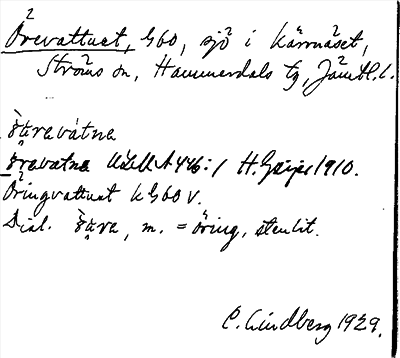 Örevattnet, G60, sjö i Kärrnäset,
Ströms sn, Hammerdals tg, Jämtl. l.
öravatna
öravatna ULMA 446:1 H. Geijer 1910.
Öringvattnet k G60 v.
Dial. öra, m. = öring, stenbit.
C. Lindberg 1929.